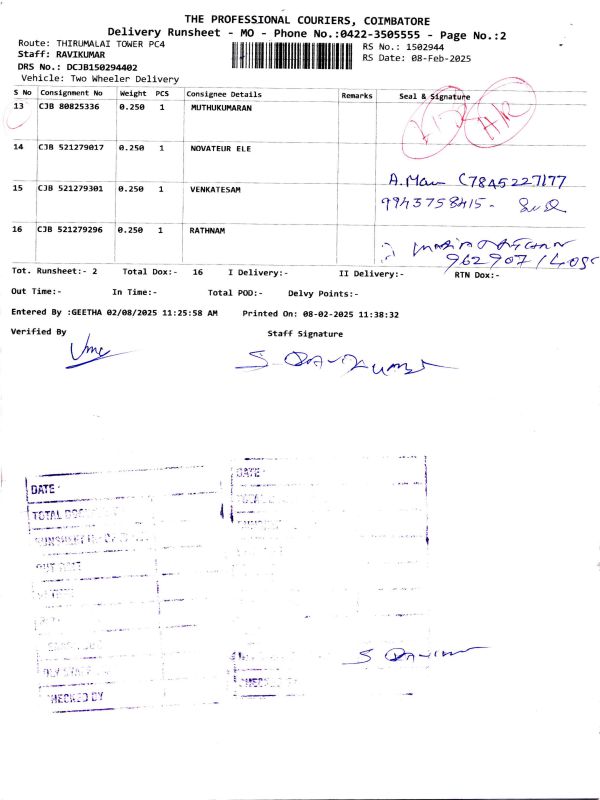 THE PROFESSIONAL COURIERS, COIMBATORE
Delivery Runsheet - MO - Phone No.:0422-3505555 - Page No.:2
Route: THIRUMALAI TOWER PC4
RS No.: 1502944
Staff: RAVIKUMAR
RS Date: 08-Feb-2025
DRS No.: DCJB150294402
Vehicle: Two Wheeler Delivery
S No Consignment No Weight PCS Consignee Details Remarks Seal & Signature
13 CJB 80825336 0.250 1 MUTHUKUMARAN
14 CJB 521279017 0.250 1 NOVATEUR ELE
15 CJB 521279301 0.250 1 VENKATESAM
A.Man (7845227177
9943758415-
16 CJB 521279296 0.250 1 RATHNAM
Tot. Runsheet:- 2 Total Dox:- 16 I Delivery:- II Delivery:- RTN Dox:-
Out Time:- In Time:- Total POD:- Delvy Points:-
Entered By :GEETHA 02/08/2025 11:25:58 AM Printed On: 08-02-2025 11:38:32
Verified By Staff Signature
S Ravikumar
DATE
DATE
TOTAL
CHECKED BY
CHECKED BY